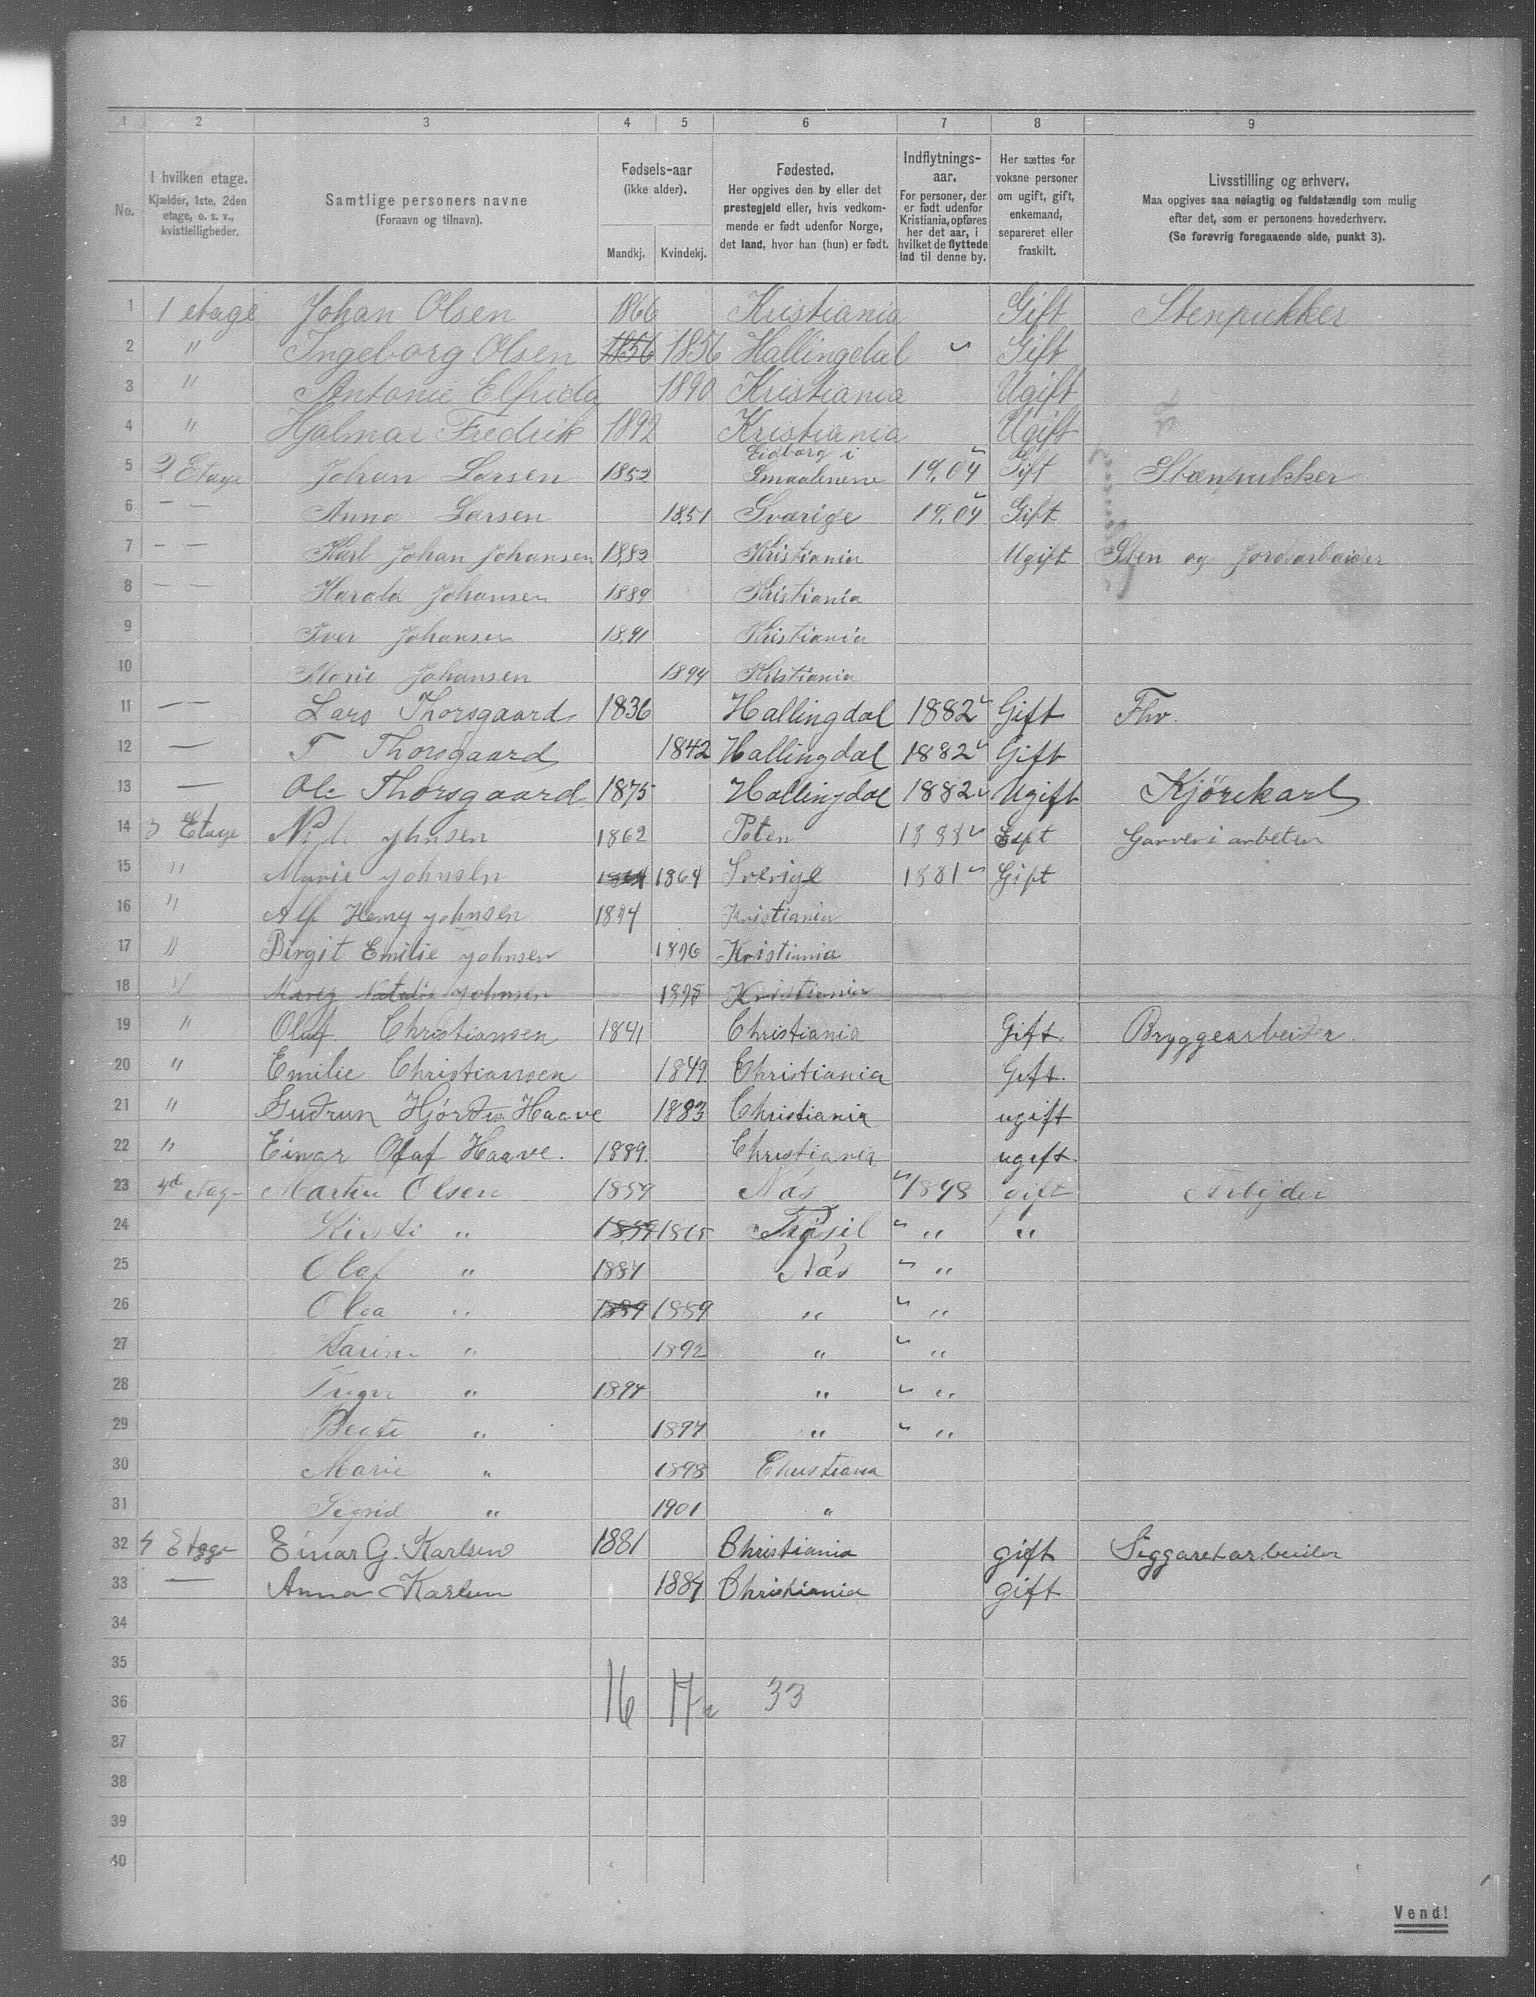 1 2 3 4 5 6 7 8 9
No. I hvilken etage. Kjælder, 1ste, 2den etage, o. s. v., kvistleiligheder. Samtlige personers navne (Fornavn og tilnavn). Fødsels-aar (ikke alder). Mandkj. Kvindekj. Fødested. Her opgives den by eller det prestegjeld eller, hvis vedkommende er født udenfor Norge, det land, hvor han (hun) er født. Indflytnings-aar. For personer, der er født udenfor Kristiania, opføres her det aar, i hvilket de flyttede ind til denne by. Her sættes for voksne personer om ugift, gift, enkemand, separeret eller fraskilt. Livsstilling og erhverv. Maa opgives saa nøiagtig og fuldstændig som mulig efter det, som er personens hovederhverv. (Se forøvrig foregaaende side, punkt 3).
1 1 etage Johan Olsen 1866 Kristiania Gift Stenpukker
2 " Ingeborg Olsen 1856 1856 Hallingdal Gift
3 " Antonie Elfrida 1890 Kristiania Ugift
4 " Hjalmar Fredrik 1892 Kristiania Ugift
5 2 Etage Johan Larsen 1852 Eidberg i Smaalenene 19.04 Gift Stænpukker
6 — — Anna Larsen 1851 Sværige 19.04 Gift
7 — — Karl Johan Johansen 1883 Kristiania Ugift Sten og Jordarbeider
8 — — Harald Johansen 1889 Kristiania
9 Iver Johansen 1891 Kristiania
10 Marie Johansen 1894 Kristiania
11 — — Lars Thorsgaard 1836 Hallingdal 1882 Gift Fhv.
12 — T Thorsgaard 1842 Hallingdal 1882 Gift
13 — Ole Thorsgaard 1875 Hallingdal 1882 Ugift Kjørekarl
14 3 Etage Johnsen 1862 Toten 1881 Gift Garveri arbeter
15 " Marie Johnsen 1864 1864 Sverige 1881 Gift
16 " Alf Henry Johnsen 1894 Kristiania
17 " Birgit Emilie Johnsen 1896 Kristiania
18 " Natalie Johnsen 1898 Kristiania
19 " Olaf Christiansen 1841 Christiania Gift. Bryggearbeider.
20 " Emilie Christiansen 1849 Christiania Gift.
21 " Gudrun Hjørdis Haave 1883 Christiania ugift
22 " Einar Olaf Haave. 1889. Christiania ugift.
23 4d etag- Martin Olsen 1859 Nas 1898 gift Arbejder
24 Kirsti " 1859 1865 Trysil " "
25 Olaf " 1887 Næs "
26 Olea " 1889 1889 " "
27 Karine " 1892 " "
28 " 1894 " "
29 Beate " 1897 " "
30 Marie " 1898 Christiana
31 Sigrid " 1901 "
32 4 Etage Einar G. Karlsen 1881 Christiania gift Siggaretarbeider
33 — Anna Karlsen 1884 Christiania gift
34
35
36 16 17 33
37
38
39
40
Vend!